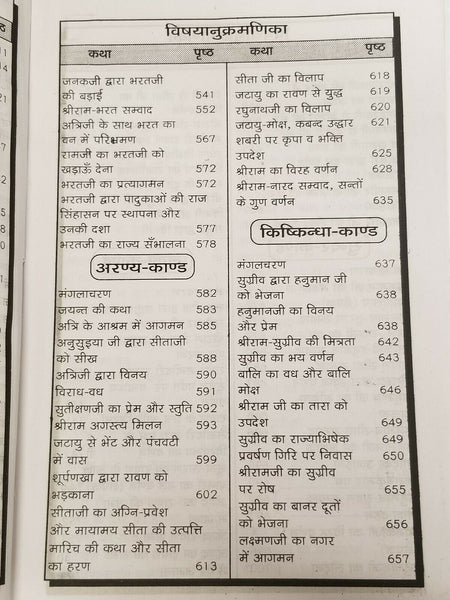 विषयानुक्रमणिका
कथा पृष्ठ
जनकजी द्वारा भरतजी
की बड़ाई 541
श्रीराम-भरत सम्वाद 552
अत्रिजी के साथ भरत का
वन में परिभ्रमण 567
रामजी का भरतजी को
खड़ाऊँ देना 572
भरतजी का प्रत्यागमन 572
भरतजी द्वारा पादुकाओं की राज
सिंहासन पर स्थापना और
उनकी दशा 577
भरतजी का राज्य सँभालना 578
अरण्य-काण्ड
मंगलाचरण 582
जयन्त की कथा 583
अत्रि के आश्रम में आगमन 585
अनुसुइया जी द्वारा सीताजी
को सीख 588
अत्रिजी द्वारा विनय 590
विराध-वध 591
सुतीक्षणजी का प्रेम और स्तुति 592
श्रीराम अगस्त्य मिलन 593
जटायु से भेंट और पंचवटी
में वास 599
शूर्पणखा द्वारा रावण को
भड़काना 602
सीताजी का अग्नि-प्रवेश
और मायामय सीता की उत्पत्ति
मारिच की कथा और सीता
का हरण 613
कथा पृष्ठ
सीता जी का विलाप 618
जटायु का रावण से युद्ध 619
रघुनाथजी का विलाप 620
जटायु-मोक्ष, कबन्द उद्धार 621
शबरी पर कृपा व भक्ति
उपदेश 625
श्रीराम का विरह वर्णन 628
श्रीराम-नारद सम्वाद, सन्तों
के गुण वर्णन 635
किष्किन्धा-काण्ड
मंगलचरण 637
सुग्रीव द्वारा हनुमान जी
को भेजना 638
हनुमानजी का विनय
और प्रेम 638
श्रीराम-सुग्रीव की मित्रता 642
सुग्रीव का भय वर्णन 643
बालि का वध और बालि
मोक्ष 646
श्रीराम जी का तारा को
उपदेश 649
सुग्रीव का राज्याभिषेक 649
प्रवर्षण गिरि पर निवास 650
श्रीरामजी का सुग्रीव
पर रोष 655
सुग्रीव का बानर दूतों
को भेजना 656
लक्ष्मणजी का नगर
में आगमन 657